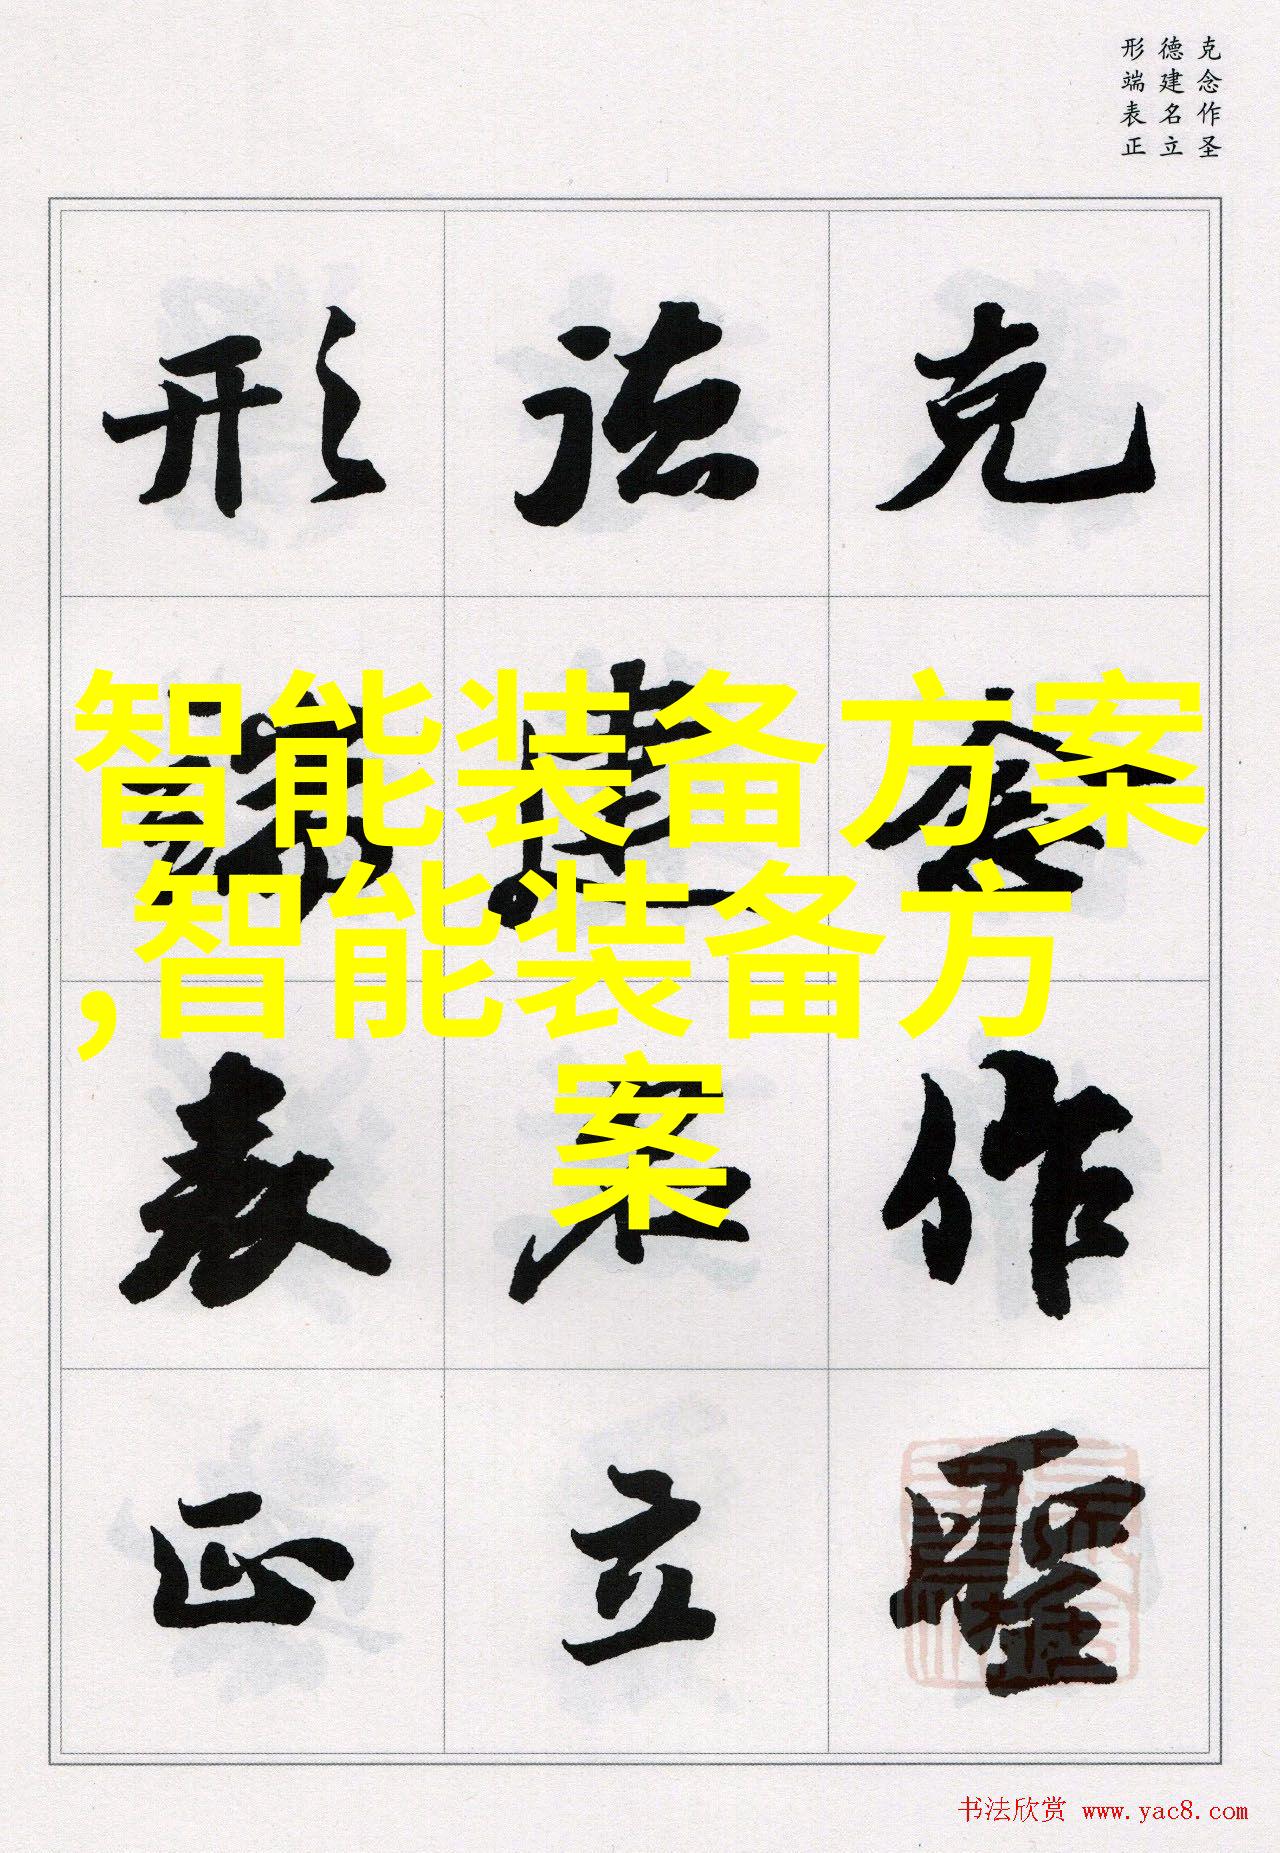 克念作圣
德建名立
形端表正
克念作聖
德建名立
形端表正
智能装备方案
,智能装备方
案
书法欣赏 www.yac8.com